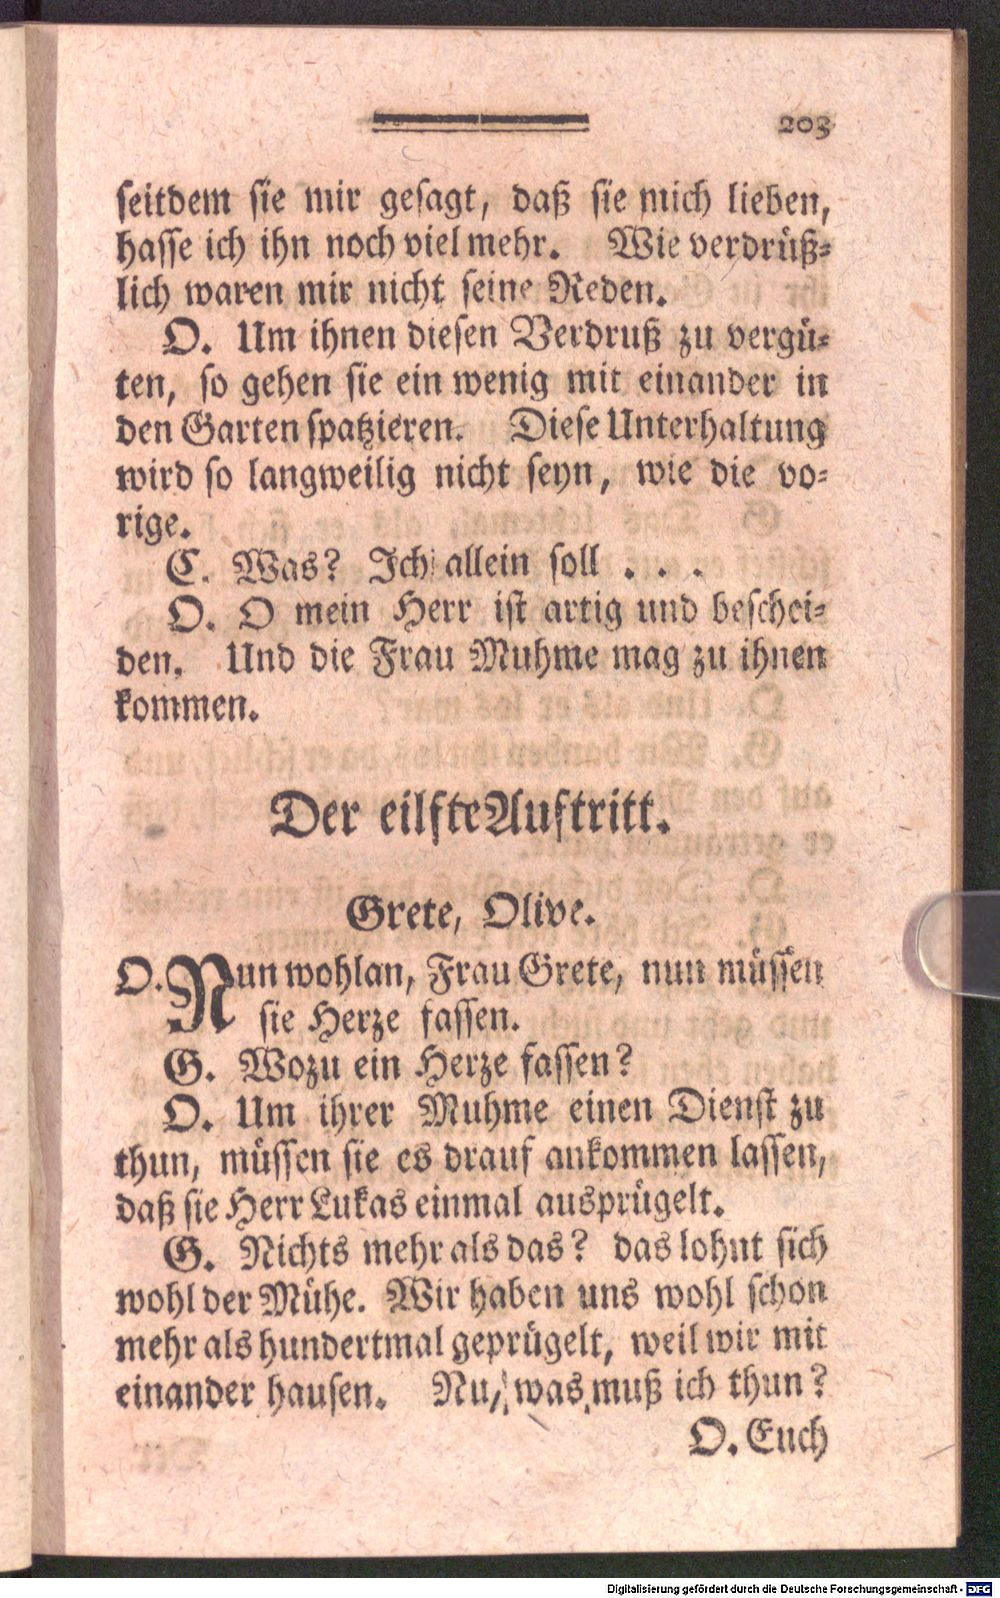 203
seitdem sie mir gesagt, daß sie mich lieben,
hasse ich ihn noch viel mehr. Wie verdrüß-
lich waren mir nicht seine Reden.
O. Um ihnen diesen Verdruß zu vergü-
ten, so gehen sie ein wenig mit einander in
den Garten spatzieren. Diese Unterhaltung
wird so langweilig nicht seyn, wie die vo-
rige.
C. Was? Ich allein soll . . .
O. O mein Herr ist artig und beschei-
den. Und die Frau Muhme mag zu ihnen
kommen.
Der eilfte Auftritt.
Grete, Olive.
O. Nun wohlan, Frau Grete, nun müssen
sie Herze fassen.
G. Wozu ein Herze fassen?
O. Um ihrer Muhme einen Dienst zu
thun, müssen sie es drauf ankommen lassen,
daß sie Herr Lukas einmal ausprügelt.
G. Nichts mehr als das? das lohnt sich
wohl der Mühe. Wir haben uns wohl schon
mehr als hundertmal geprügelt, weil wir mit
einander hausen. Nu, was muß ich thun?
O. Euch
Digitalisierung gefördert durch die Deutsche Forschungsgemeinschaft - DFG